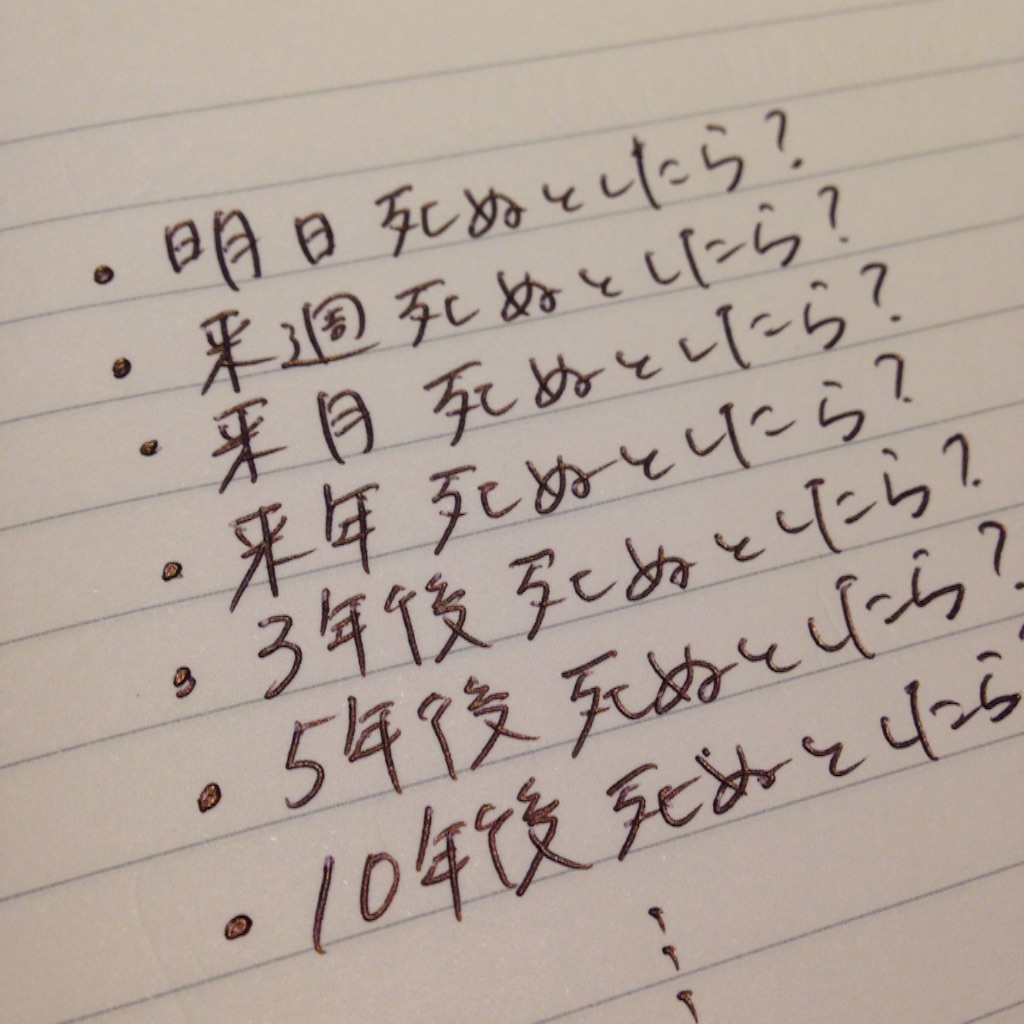 ・明日死ぬとしたら?
・来週死ぬとしたら?
・来月死ぬとしたら?
・来年死ぬとしたら?
・3年後死ぬとしたら?
・5年後死ぬとしたら?
・10年後死ぬとしたら?
⋮